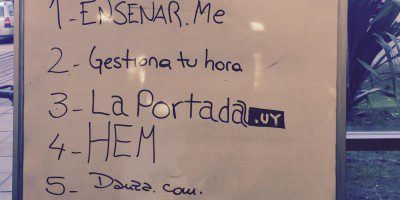 1-ENSENAR.Me
2- Gestiona tu hora
3-LaPortada.UY
4-HEM
5- Danza.com.